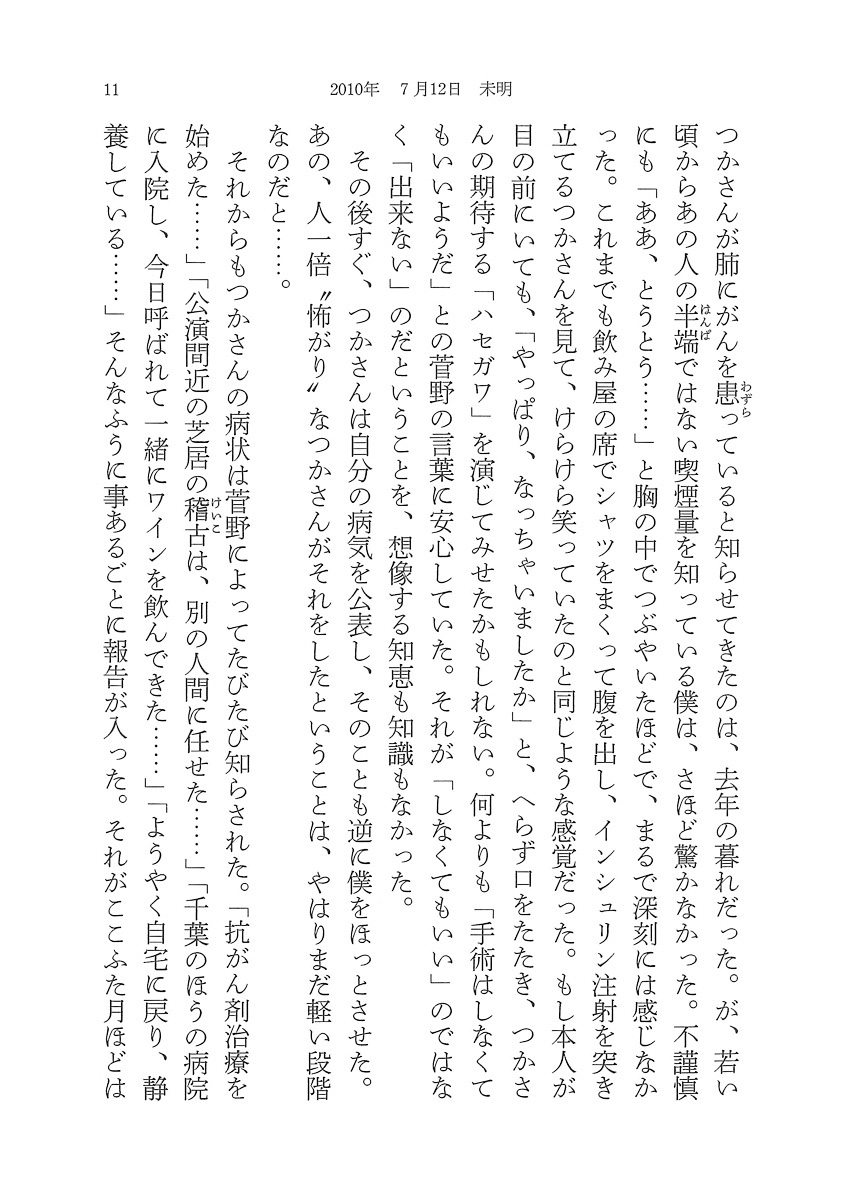 11
2010年　7月12日　未明
つかさんが肺にがんを患っていると知らせてきたのは、去年の暮れだった。が、若い
頃からあの人の半端ではない喫煙量を知っている僕は、さほど驚かなかった。不謹慎
にも「ああ、とうとう……」と胸の中でつぶやいたほどで、まるで深刻には感じなか
った。これまでも飲み屋の席でシャツをまくって腹を出し、インシュリン注射を突き
立てるつかさんを見て、けらけら笑っていたのと同じような感覚だった。もし本人が
目の前にいても、「やっぱり、なっちゃいましたか」と、へらず口をたたき、つかさ
んの期待する「ハセガワ」を演じてみせたかもしれない。何よりも「手術はしなくて
もいいようだ」との菅野の言葉に安心していた。それが「しなくてもいい」のではな
く「出来ない」のだということを、想像する知恵も知識もなかった。
　その後すぐ、つかさんは自分の病気を公表し、そのことも逆に僕をほっとさせた。
あの、人一倍〝怖がり〟なつかさんがそれをしたということは、やはりまだ軽い段階
なのだと……。
　それからもつかさんの病状は菅野によってたびたび知らされた。「抗がん剤治療を
始めた……」「公演間近の芝居の稽古は、別の人間に任せた……」「千葉のほうの病院
に入院し、今日呼ばれて一緒にワインを飲んできた……」「ようやく自宅に戻り、静
養している……」そんなふうに事あるごとに報告が入った。それがここふた月ほどは
わずら
はんぱ
けいこ